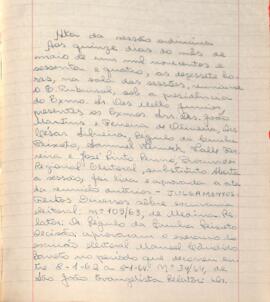 Ata da sessão ordinária
Aos quinze dias do mês de
maio de um mil novecentos e
sessenta e quatro, às dezessete ho-
ras, na sala das sessões, reuniu-se
o E. Tribunal, sob a presidência
do Exmo. Sr. Des. Mello Junior,
presentes os Exmos. Srs. Drs. João
Martins de Oliveira,
César Silveira, Régulo da Cunha
Peixoto,
reira e José Pinto Renno, Procurador
Regional Eleitoral, substituto. Aberta
a sessão, foi lida e aprovada a ata
da reunião anterior - JULGAMENTOS
Feitos Diversos sobre escrivania
eleitoral: nº 109/63, de Medina. Re-
lator: Dr. Régulo da Cunha Peixoto
Decisão: aprovaram o exercício do
escrivão eleitoral Manoel
no período que decorre en-
tre 8-1-62 a 8-1-64. Nº 34/64, de
São João Evangelista. Relator: Dr.